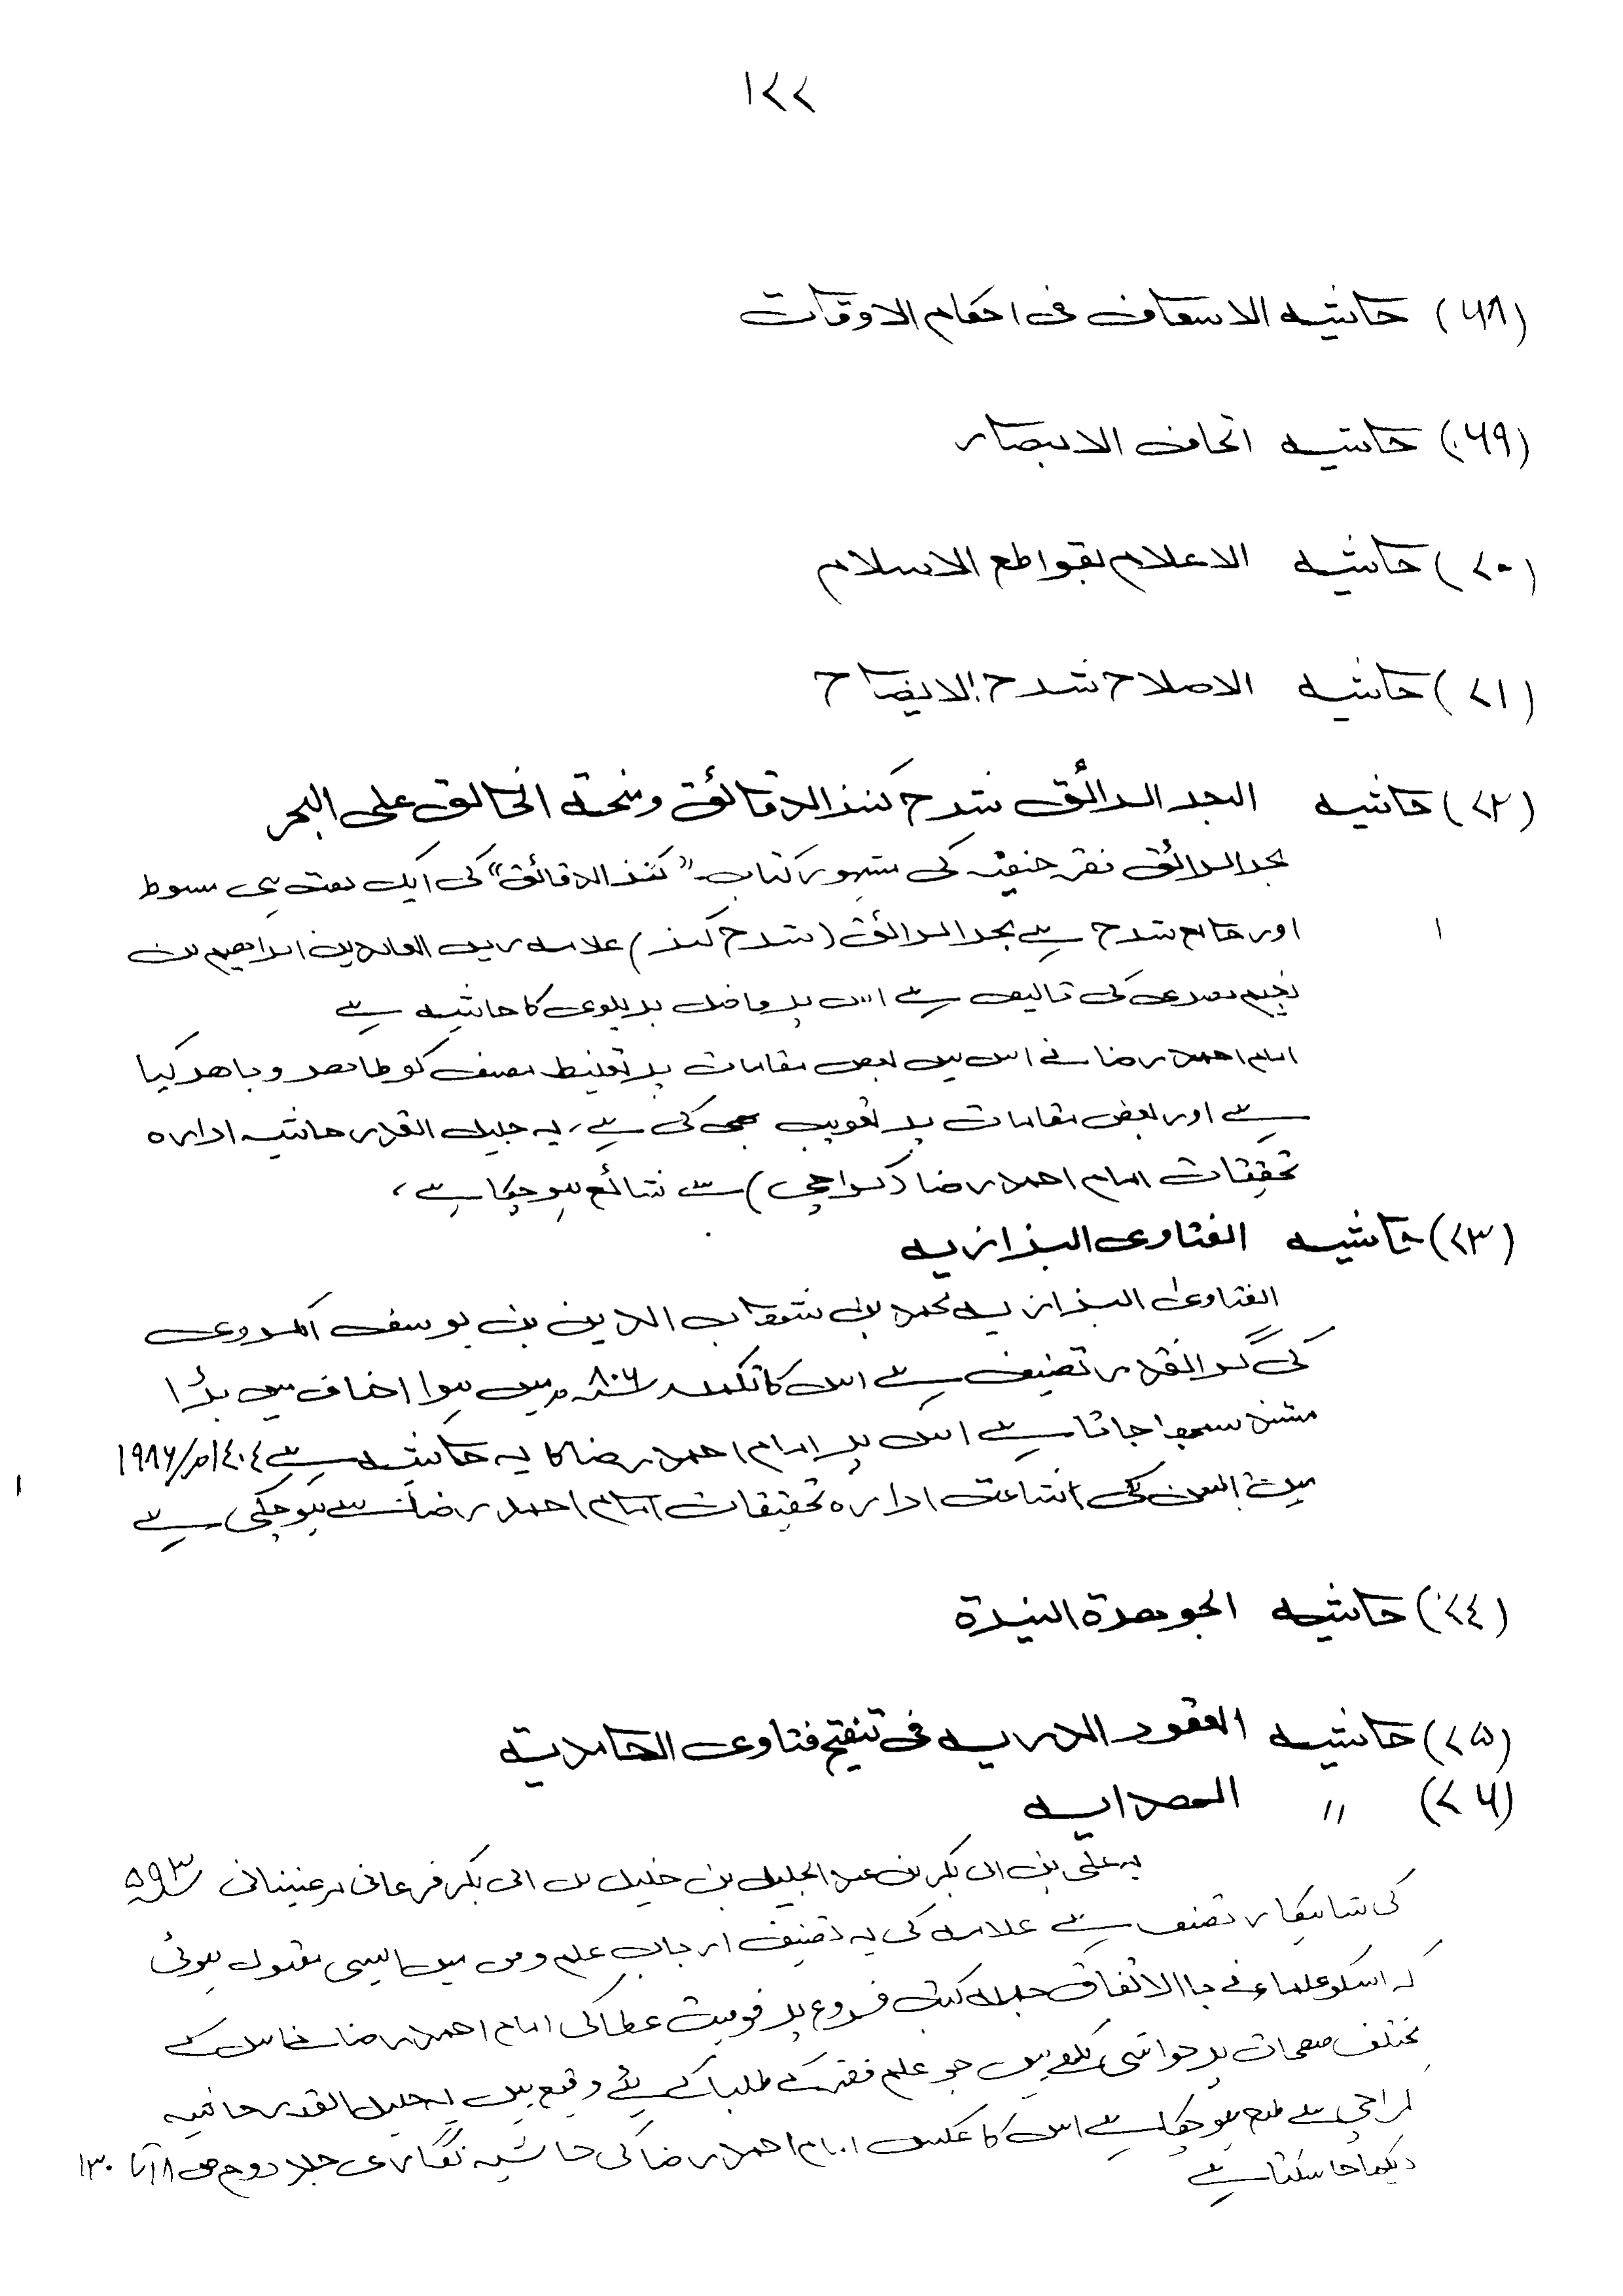 ۱۷۷
(۶۸) حاشیہ الاسعاف فی احکام الاوقات
(۶۹) حاشیہ اتحاف الابصار
(۷۰) حاشیہ الاعلام بقواطع الاسلام
(۷۱) حاشیہ الاصلاح شرح الایضاح
(۷۲) حاشیہ البحر الرائق شرح کنز الدقائق و منحۃ الخالق علی البحر
بحر الرائق فقہ حنفیہ کی مشہور کتاب "کنز الدقائق" کی ایک بہت ہی مبسوط
اور جامع شرح ہے بحر الرائق (شرح کنز) علامہ زین العابدین ابراھیم بن
نجیم مصری کی تالیف ہے اس پر فاضل بریلوی کا حاشیہ ہے
امام احمد رضا نے اس میں بعض مقامات پر تغلیط مصنف کو ظاھر و باھر کیا
ہے اور بعض مقامات پر تصویب بھی کی ہے، یہ جلیل القدر حاشیہ ادارہ
تحقیقات امام احمد رضا (کراچی) سے شائع ہو چکا ہے،
(۷۳) حاشیہ الفتاوی البزازیہ
الفتاویٰ البزازیہ محمد بن شھاب الدین بن یوسف الکردری
کی گرانقدر تصنیف ہے اس کا تکملہ ۸۰۶ھ میں ہوا احناف میں بڑا
مستند سمجھا جاتا ہے اس پر امام احمد رضا کا یہ حاشیہ ہے ۱۴۰۴ھ/۱۹۸۶
میں اس کی اشاعت ادارہ تحقیقات امام احمد رضا سے ہو چکی ہے
(۷۴) حاشیہ الجوھرۃ النیرۃ
(۷۵) حاشیہ العقود الدریہ فی تنقیح فتاوی الحامدیۃ
(۷۶) 〃 الھدایہ
یہ علی بن ابی بکر بن عبد الجلیل بن خلیل بن ابی بکر فرغانی مرغینانی ۵۹۳ھ
کی شاہکار تصنیف ہے علامہ کی یہ تصنیف ارباب علم و فن میں ایسی مقبول ہوئی
کہ اسکو علماء نے باالاتفاق جملہ کتب فروع پر فوقیت عطا کی امام احمد رضا نے اس کے
مختلف صفحات پر حواشی لکھے ہیں جو علم فقہ کے طلبا کے لئے وقیع ہیں یہ جلیل القدر حاشیہ
کراچی سے طبع ہو چکا ہے اس کا عکس امام احمد رضا کی حاشیہ نگاری جلد دوم ص ۱۸ تا ۱۳۰
دیکھا جا سکتا ہے